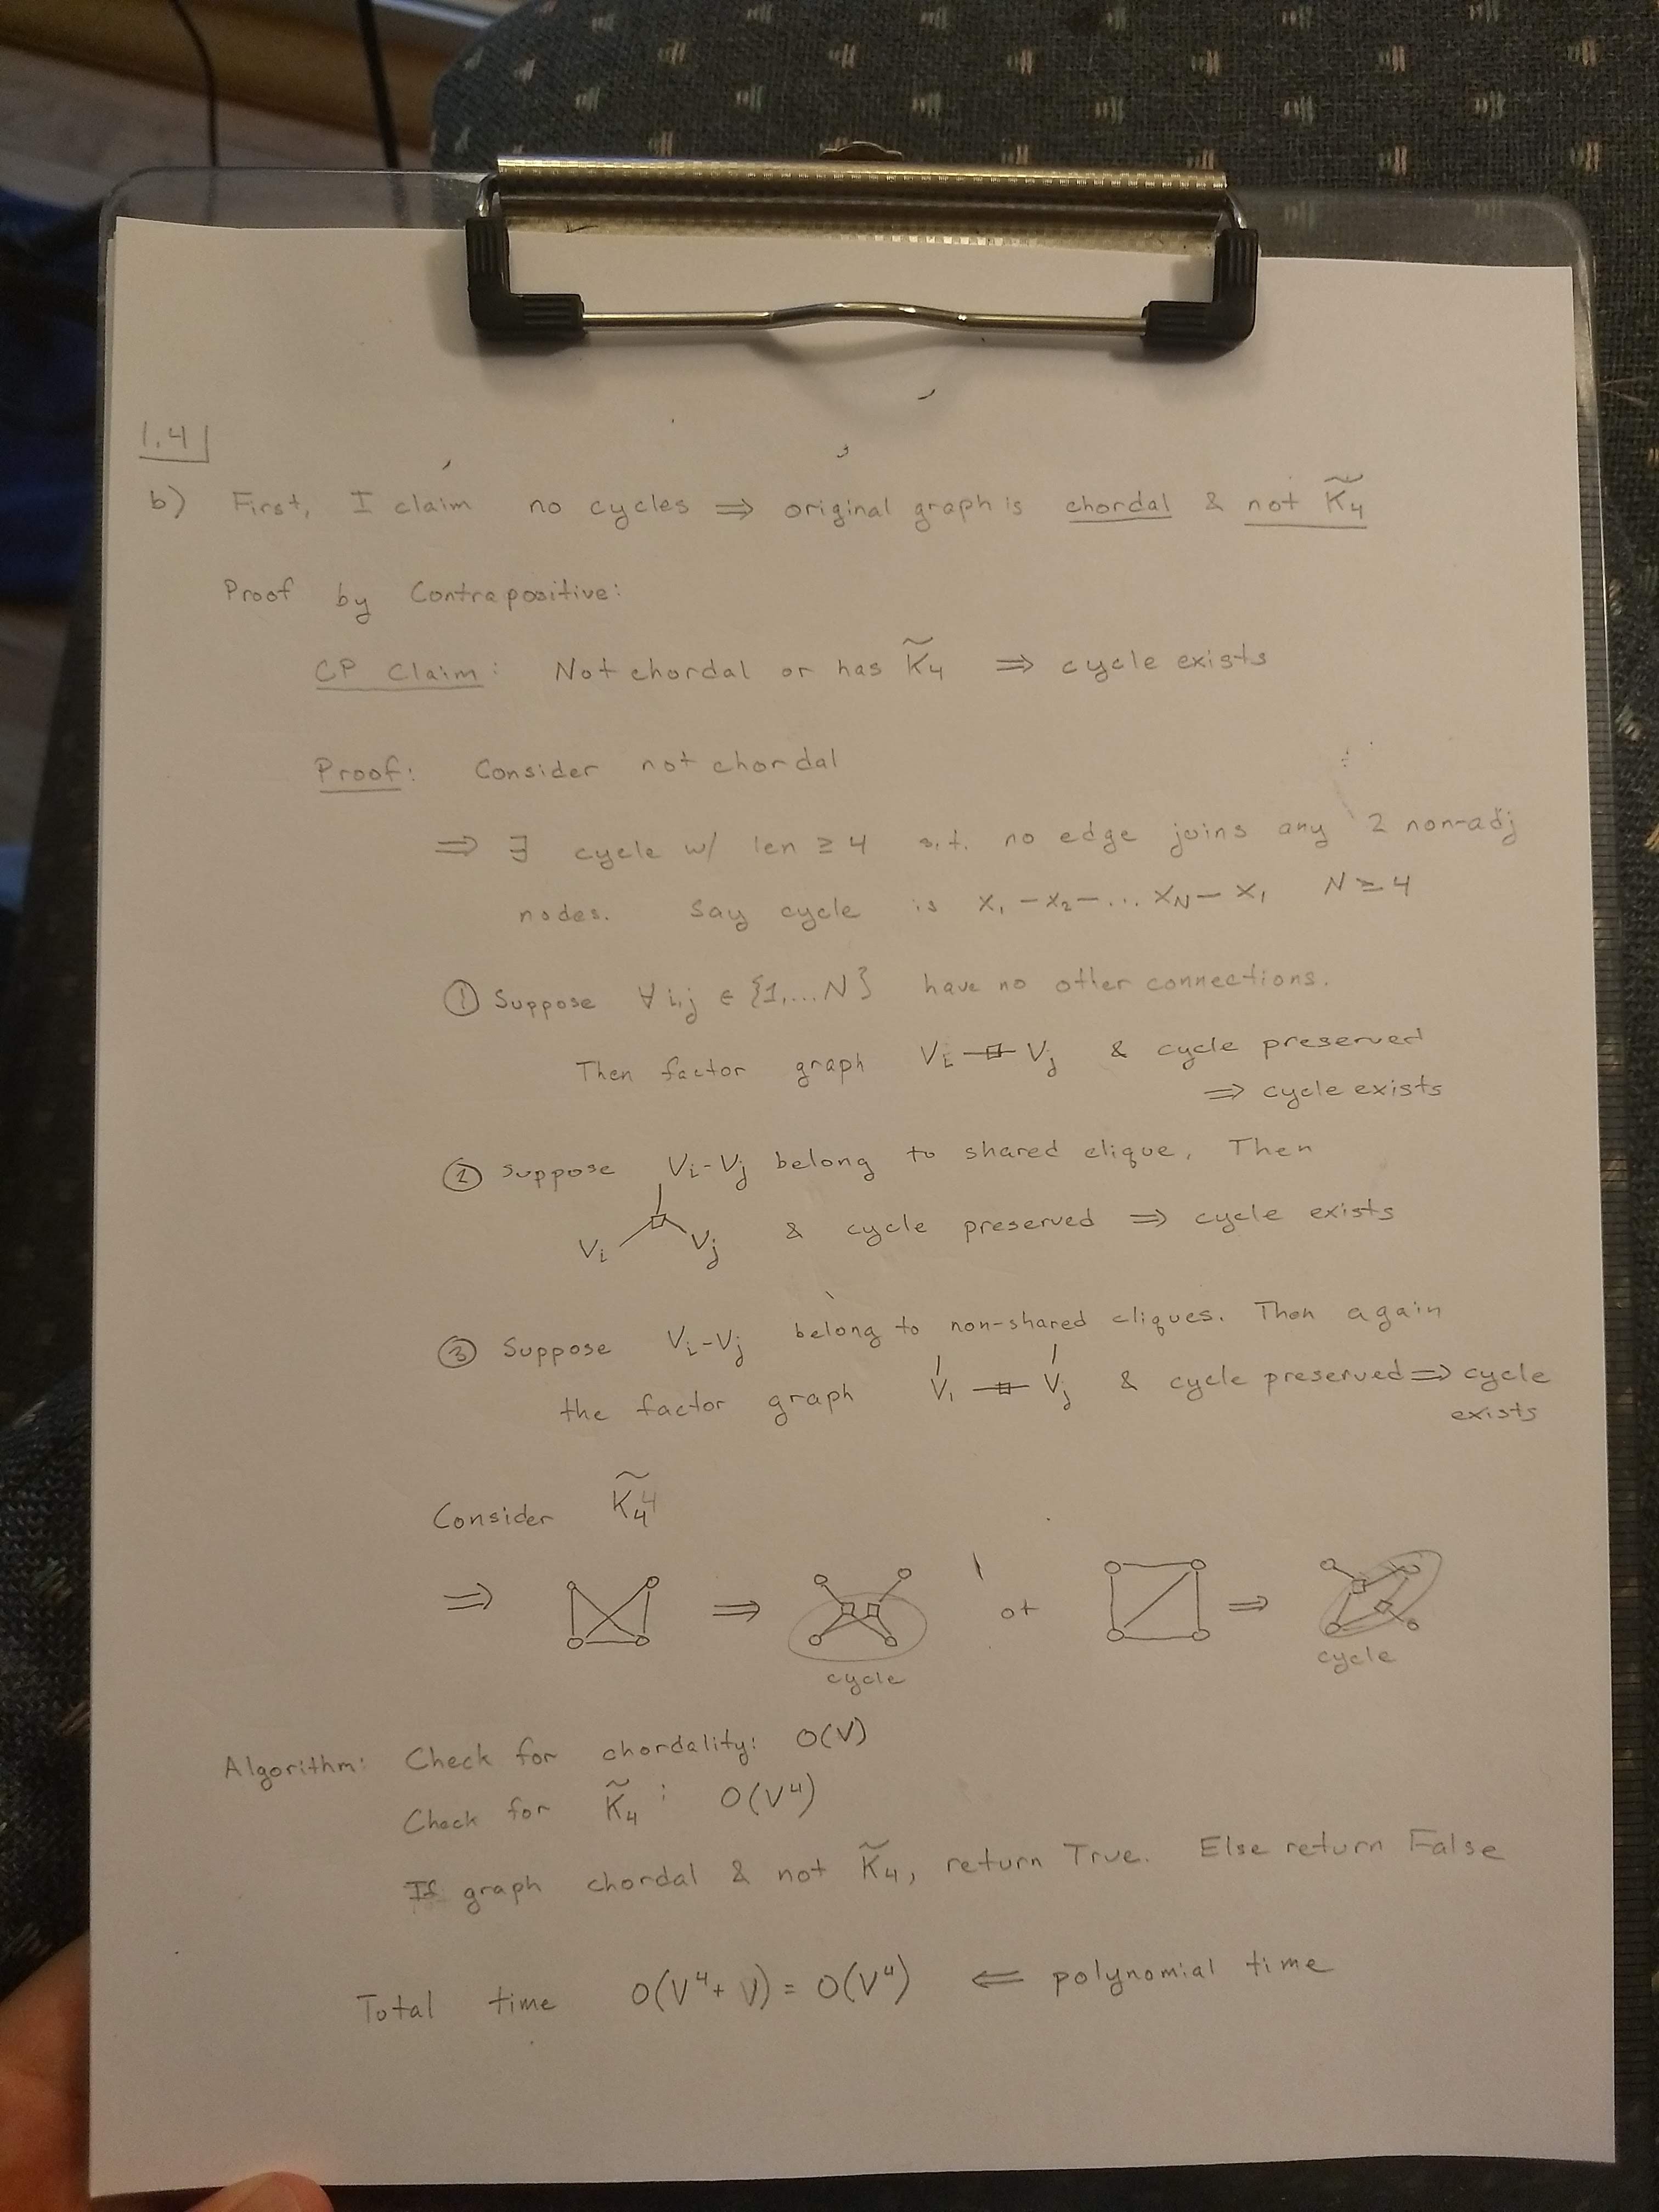 1.4
b) First, I claim no cycles ⇒ original graph is chordal & not K̃₄
Proof by Contrapositive:
CP Claim: Not chordal or has K̃₄ ⇒ cycle exists
Proof: Consider not chordal
⇒ ∃ cycle w/ len ≥ 4 s.t. no edge joins any 2 non-adj
nodes. Say cycle is X₁ – X₂ – ... X_N – X₁ N ≥ 4
① Suppose ∀ i,j ∈ {1,...N} have no other connections.
Then factor graph Vᵢ –□– Vⱼ & cycle preserved
⇒ cycle exists
② Suppose Vᵢ-Vⱼ belong to shared clique, Then
Vᵢ Vⱼ & cycle preserved ⇒ cycle exists
③ Suppose Vᵢ-Vⱼ belong to non-shared cliques. Then again
the factor graph Vᵢ –□– Vⱼ & cycle preserved ⇒ cycle
exists
Consider K̃₄
⇒ ⇒ or ⇒
cycle cycle
Algorithm: Check for chordality: O(V)
Check for K̃₄: O(V⁴)
If graph chordal & not K̃₄, return True. Else return False
Total time O(V⁴ + V) = O(V⁴) ⇐ polynomial time